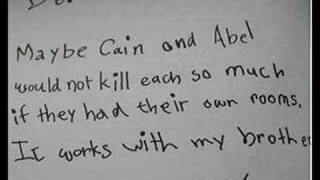 Maybe Cain and Abel
would not kill each so much
if they had their own rooms.
It works with my brother